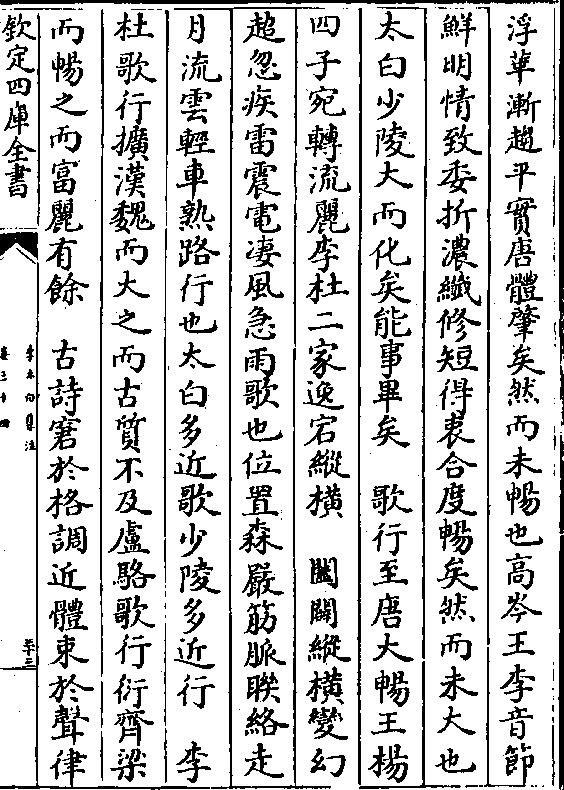 浮華漸趨平實唐體肇矣然而未暢也高岑王李音節
鮮明情致委折濃纖修短得衷合度暢矣然而未大也
太白少陵大而化矣能事畢矣　歌行至唐大暢王楊
四子宛轉流麗李杜二家逸宕縱橫　闔闢縱橫變幻
超忽疾雷震電凄風急雨歌也位置森嚴筋脈聮絡走
月流雲輕車熟路行也太白多近歌少陵多近行　李
杜歌行擴漢魏而大之而古質不及盧駱歌行衍齊梁
而暢之而富麗有餘　古詩窘於格調近體束於聲律
欽定四庫全書
李太白集注
卷三十四